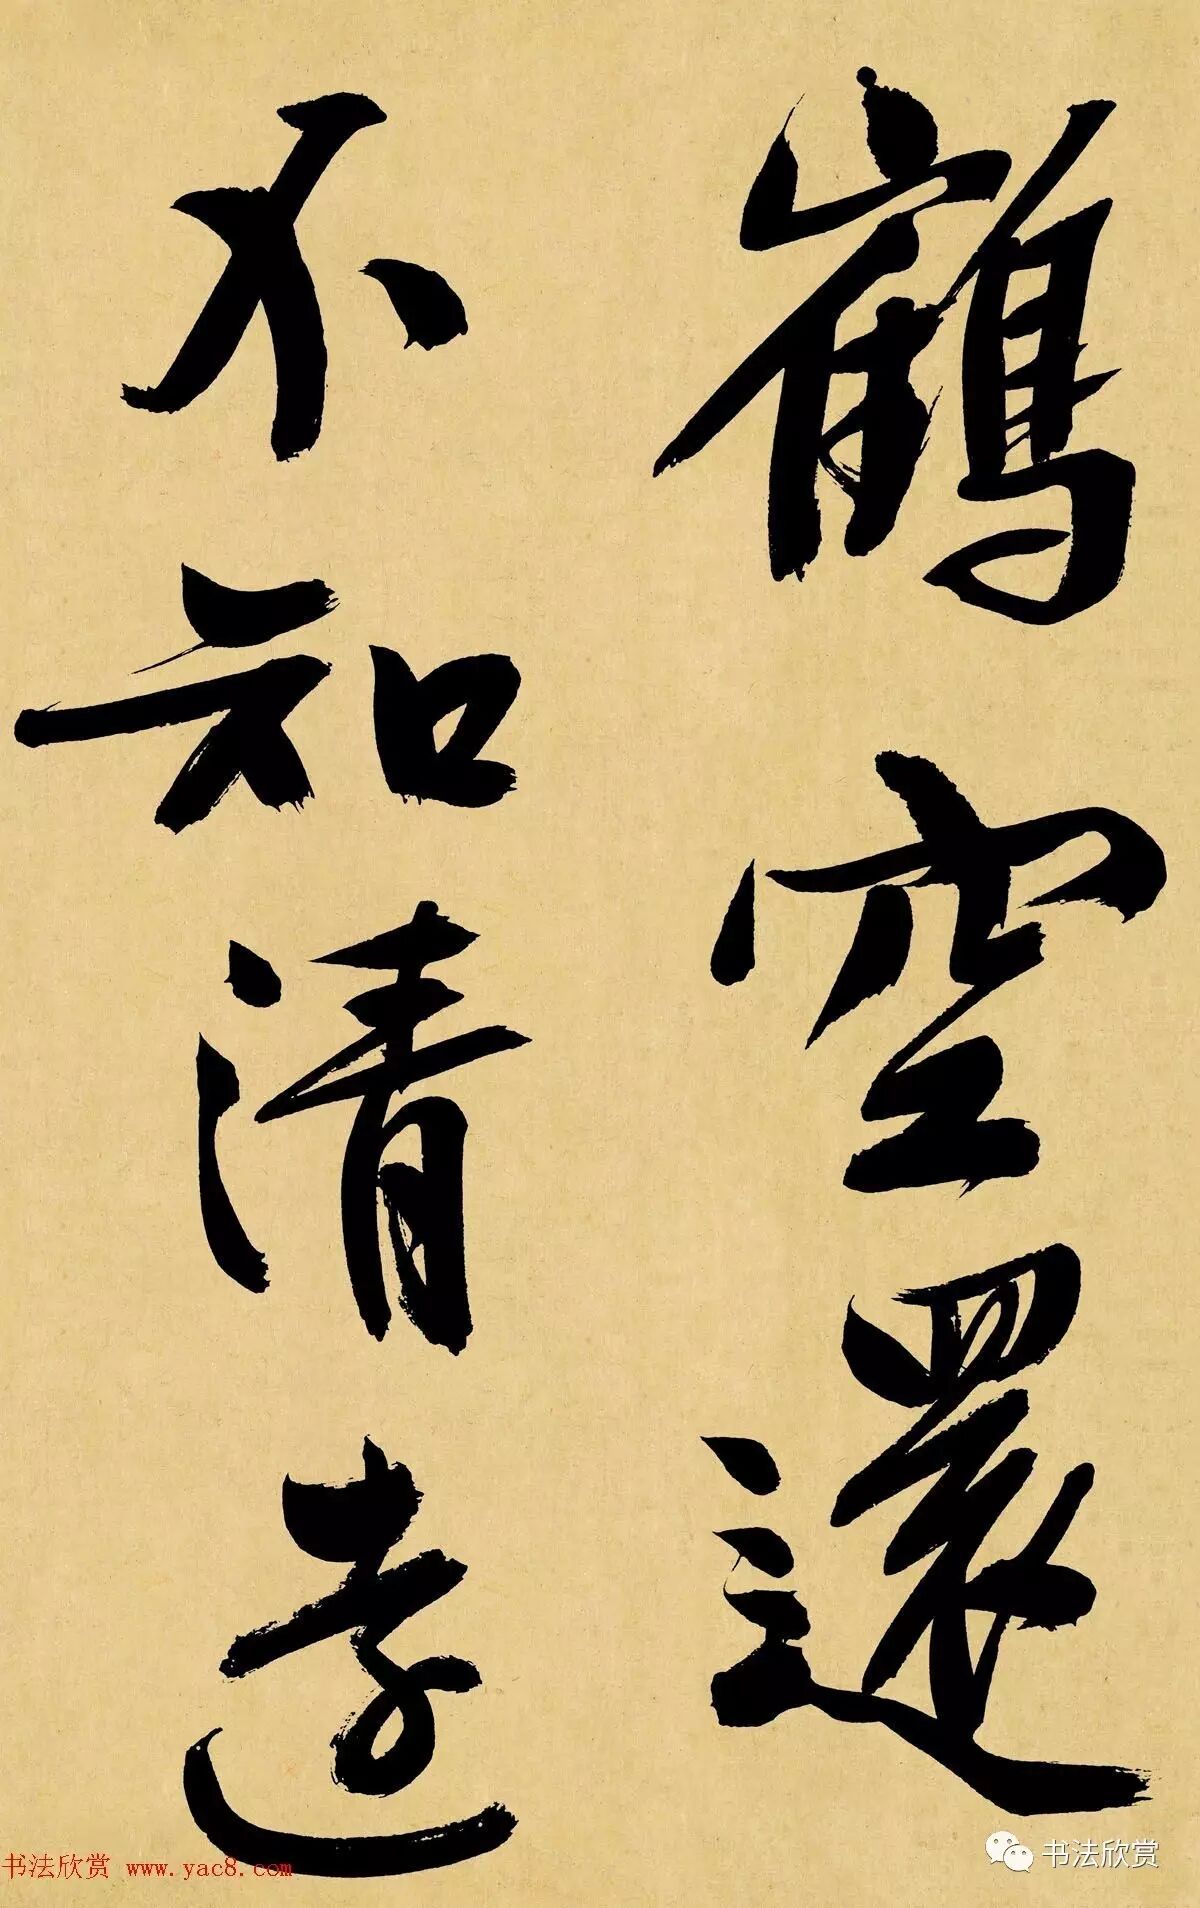 鶴空還
不知清遠
书法欣赏 www.yac8.com
书法欣赏